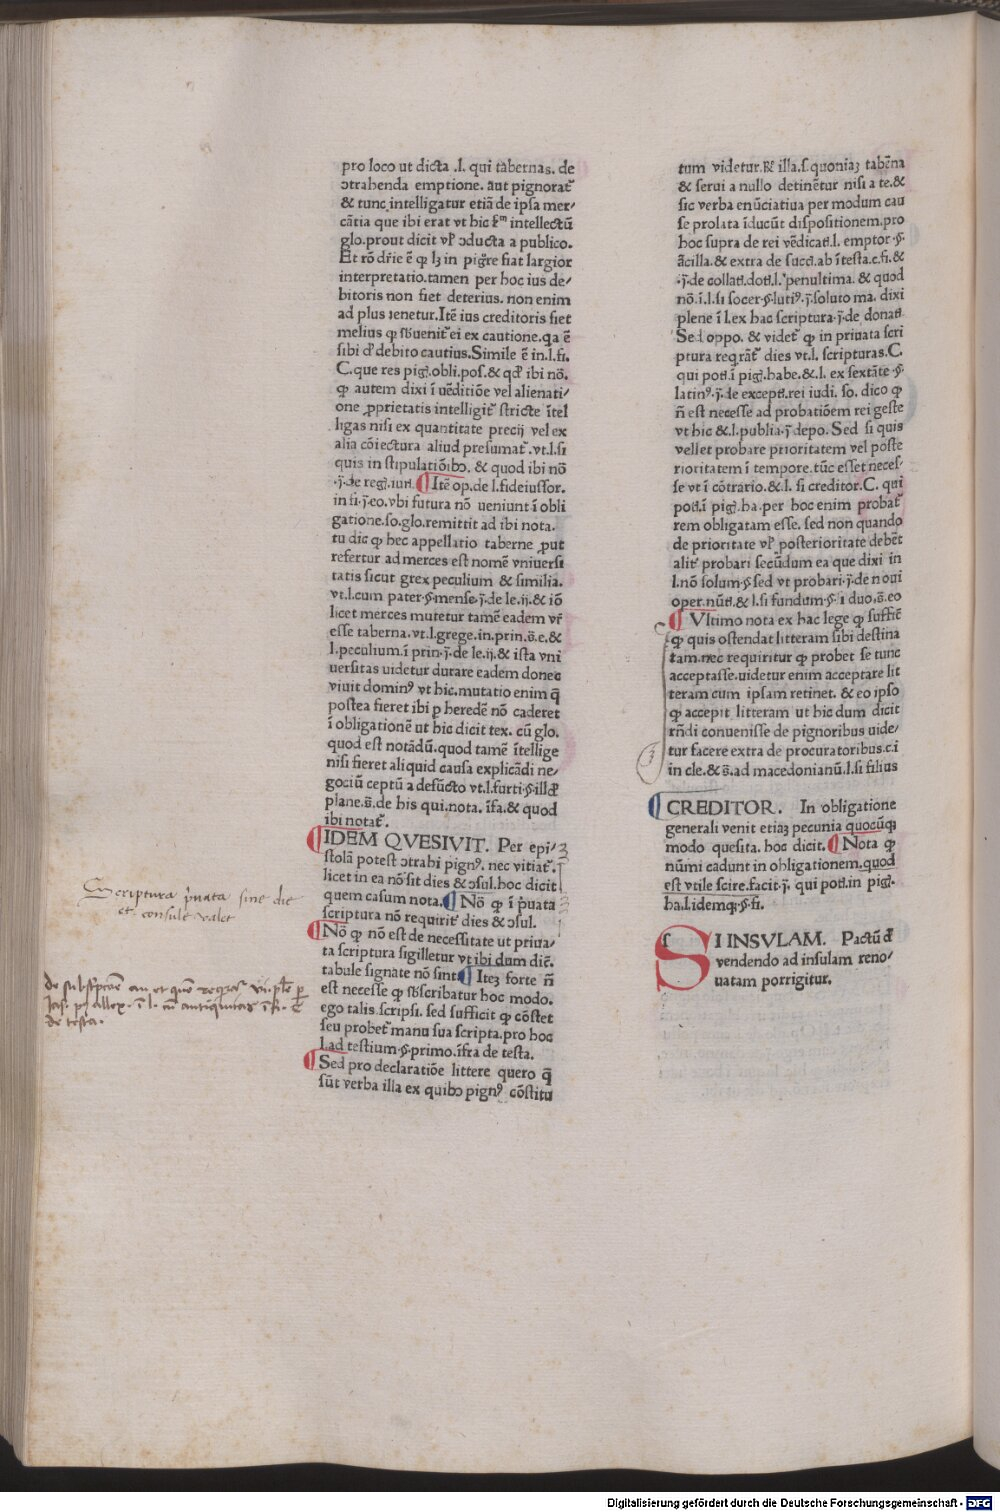 pro loco ut dicta .l. qui tabernas. de
ↄtrahenda emptione. aut pignorat᷑
& tunc intelligatur etiā de ipsa mer⸗
cātia que ibi erat vt hic intellectū
glo.prout dicit vl̕ ↄducta a publico.
Et rō dr̄ie ē ꝙ lꝫ in pig̃re fiat largior
interpretatio.tamen per hoc ius de⸗
bitoris non fiet deterius. non enim
ad plus tenetur.Itē ius creditoris fiet
melius ꝙ sb̄uenit᷑ ei ex cautione.qa ē
sibi d̕ debito cautius.Simile ē in.l.fi.
C.que res pig̃.obli.pos.& qd̕ ibi nō.
ꝙ autem dixi ī uēditiōe vel alienati⸗
one ꝓprietatis intelligit᷑ stricte ītel
ligas nisi ex quantitate precij vel ex
alia cōiectura aliud presumat᷑.vt.l.si
quis in stipulatiōibꝰ. & quod ibi nō
.j̄.de reg̃.iuri. ¶ Itē op.de l.fideiussor.
in fi.j̄.eo.vbi futura nō ueniunt ī obli
gatione.so.glo.remittit ad ibi nota.
tu dic ꝙ hec appellatio taberne ꝓut
refertur ad merces est nomē vniuersi
tatis sicut grex peculium & similia.
vt.l.cum pater.§.mense.j̄.de le.ij.& iō
licet merces mutetur tamē eadem vr̄
esse taberna.vt.l.grege.in.prin.s̄.e.&
l.peculium.ī prin.j̄.de le.ij.& ista vni
uersitas uidetur durare eadem donec
viuit dominꝰ vt hic.mutatio enim q̄
postea fieret ibi p heredē nō caderet
ī obligationē ut hic dicit tex. cū glo.
quod est notādū.quod tamē ītellige
nisi fieret aliquid causa explicādi ne⸗
gociū ceptū a defūcto vt.l.furti.§.illd̕
plane.s̄.de his qui.nota. īfa.& quod
ibi notat᷑.
¶ IDEM QVESIVIT. Per epi⸗
stolā potest ↄtrahi pignꝰ. nec vitiat᷑.
licet in ea nō sit dies & ↄsul.hoc dicit
quem casum nota. ¶ Nō ꝙ ī p̄uata
scriptura nō requirit᷑ dies & ↄsul.
¶ Nō ꝙ nō est de necessitate ut priua⸗
ta scriptura sigilletur vt ibi dum dic̄.
tabule signate nō sint. ¶ Iteꝫ forte n̄
est necesse ꝙ sb̄scribatur hoc modo.
ego talis.scripsi. sed sufficit ꝙ cōstet
seu probet᷑ manu sua scripta.pro hoc
l.ad testium.§.primo.īfra de testa.
¶ Sed pro declaratiōe littere quero q̄
sūt verba illa ex quibꝰ pignꝰ cōstitu
Scriptura p̄uata sine die
et consule valet
de testa.
tum videtur.℞ illa.s.quoniaꝫ tabēna
& serui a nullo detinētur nisi a te.&
sic verba enūciatiua per modum cau
se prolata īducūt dispositionem.pro
hoc supra de rei vēdicati.l. emptor.§.
ācilla.& extra de succi.ab ītesta.c.fi.&
.j̄.de collati.doti.l.penultima. & quod
nō.ī.l.si socer.§.lutiꝰ.j̄.soluto ma. dixi
plene ī l.ex hac scriptura.j̄.de donati
Sed oppo. & videt᷑ ꝙ in priuata scri
ptura reqrāt᷑ dies vt.l. scripturas.C.
qui poti.ī pig̃.habe.& .l. ex sextāte.§.
latinꝰ.j̄.de excepti.rei iudi. so. dico ꝙ
n̄ est necesse ad probatiōem rei geste
vt hic &.l.publia.j̄.depo. Sed si quis
vellet probare prioritatem vel poste
rioritatem ī tempore.tūc esset neces⸗
se vt ī cōtrario.&.l. si creditor.C. qui
poti.ī pig̃.ha.per hoc enim probat᷑
rem obligatam esse. sed non quando
de prioritate vl̕ posterioritate debēt
alit᷑ probari secūdum ea que dixi in
l.nō solum.§.sed vt probari.j̄.de noui
oper.nūti.& l.si fundum.§.ī duo.s̄.eo
¶ Vltimo nota ex hac lege ꝙ suffic̄
ꝙ quis ostendat litteram sibi destina
tam.nec requiritur ꝙ probet se tunc
acceptasse.uidetur enim acceptare lit
teram cum ipsam retinet. & eo ipso
ꝙ accepit litteram ut hic dum dicit
rn̄di conuenisse de pignoribus uide⸗
tur facere extra de procuratoribus.c.i
in cle.& s̄.ad macedonianū.l.si filius
¶ CREDITOR. In obligatione
generali venit etiaꝫ pecunia quocūqꝫ
modo quesita. hoc dicit. ¶ Nota ꝙ
nūmi cadunt in obligationem.quod
est vtile scire.facit.j̄. qui poti.in pig̃.
ha.l.idemqꝫ.§.fi.
SI INSVLAM. Pactū d̕
vendendo ad insulam reno⸗
uatam porrigitur.
Digitalisierung gefördert durch die Deutsche Forschungsgemeinschaft - DFG